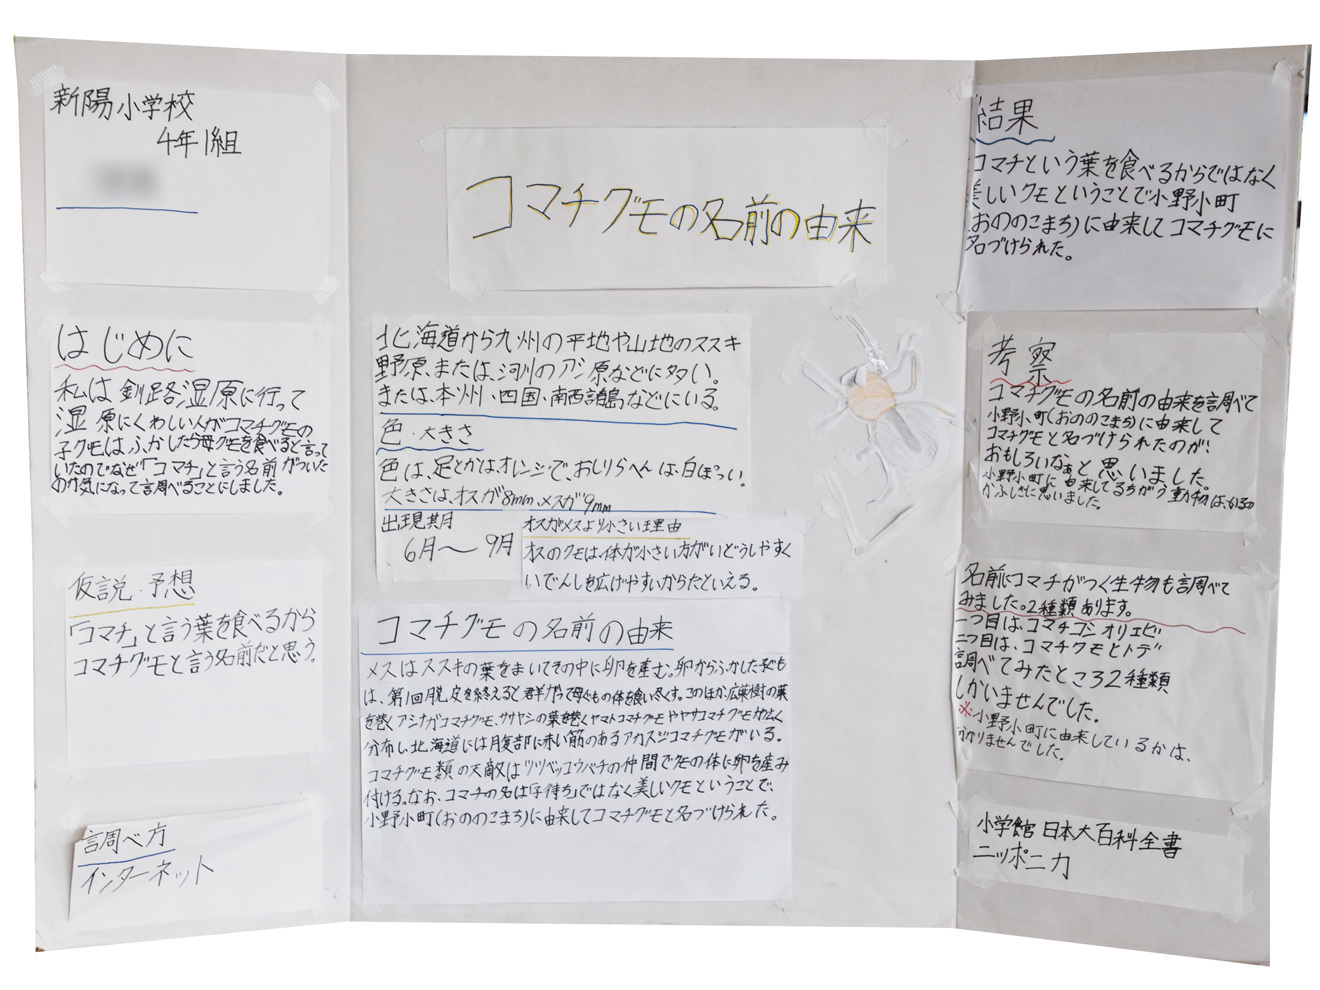 新陽小学校
4年1組
はじめに
私は釧路湿原に行って
湿原にくわしい人がコマチグモの
子グモはふかしたら母グモを食べると言って
いたのでなぜ「コマチ」と言う名前がついた
のか気になって調べることにしました。
仮説・予想
「コマチ」と言う葉を食べるから
コマチグモと言う名前だと思う。
調べ方
インターネット
コマチグモの名前の由来
北海道から九州の平地や山地のススキ
野原、または、河川のアシ原などに多い。
または、本州・四国・南西諸島などにいる。
色・大きさ
色は、足とかはオレンジで、おしりらへんは白ぽっい。
大きさは、オスが8mm、メスが9mm
出現期
6月〜9月
オスがメスより小さい理由
オスのクモは、体が小さい方がいどうしやすく
いでんしを広げやすいからだといえる。
コマチグモの名前の由来
メスはススキの葉をまいてその中に卵を産む。卵からふかした子ども
は、第1回脱皮を終えると群がって母ぐもの体を食い尽くす。このほか、広葉樹の葉
を巻くアシナガコマチグモ、ササヤシの葉を巻くヤマトコマチグモやヤサコマチグモが広く
分布し、北海道には腹部に赤い筋のあるアカスジコマチグモがいる。
コマチグモ類の天敵はツツベッコウバチの仲間でクモの体に卵を産み
付ける。なお、コマチの名は「子待ち」ではなく美しいクモということで、
小野小町(おののこまち)に由来してコマチグモと名づけられた。
結果
コマチという葉を食べるからではなく
美しいクモということで小野小町
(おののこまち)に由来してコマチグモに
名づけられた。
考察
コマチグモの名前の由来を調べて
小野小町(おののこまち)に由来して
コマチグモと名づけられたのが、
おもしろいなぁと思いました。
小野小町に由来してるちがう動物はいるの
かふしぎに思いました。
名前にコマチがつく生物も調べて
みました。2種類あります。
一つ目は、コマチコシオリエビ
二つ目は、コマチクモヒトデ
調べてみたところ2種類
しかいませんでした。
※小野小町に由来しているかは、
分かりませんでした。
小学館 日本大百科全書
ニッポニカ